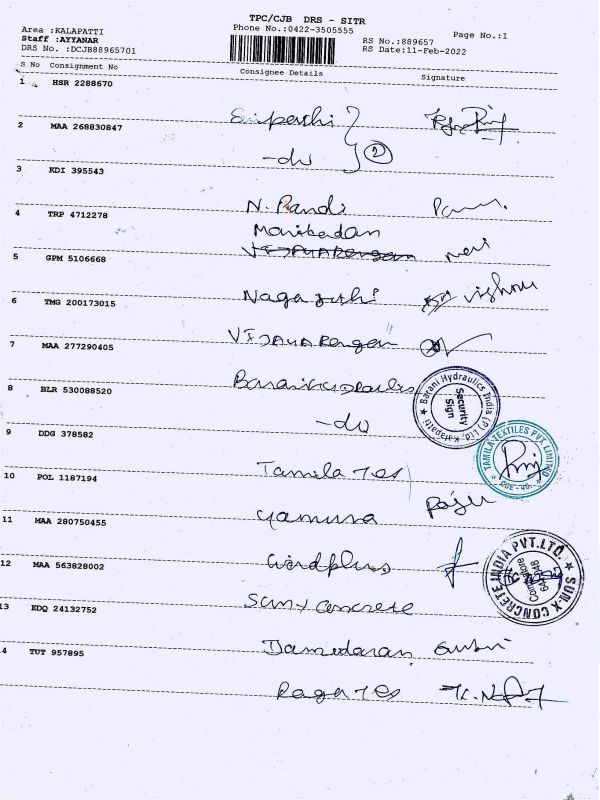 TPC/CJB DRS - SITR
Area :KALAPATTI Phone No.:0422-3505555 Page No.:1
Staff :AYYANAR RS No.:889657
DRS No. :DCJB88965701 RS Date:11-Feb-2022
S No Consignment No Consignee Details Signature
1 HSR 2288670
2 MAA 268830847
-do 2
3 KDI 395543
N. Pandi
4 TRP 4712278
Manikandan
VIJAYARengan Mani
5 GPM 5106668
Nagajothi Vishnu
6 TMG 200173015
VIJAYARengan
7 MAA 277290405
Barani Hydraulics
Barani Hydraulics India (P) Ltd., K.Vapatti
Security Sign
8 BLR 530088520
-do
9 DDG 378582
Tamila Tex
TAMILA TEXTILES PVT LIMITED
10 POL 1187194
Yamuna Raju
11 MAA 280750455
Wordplus
12 MAA 563828002
Sun-x Concrete
SUN-X CONCRETE INDIA PVT.LTD.
Coimbatore
13 EDQ 24132752
Damodaran
4 TUT 957895
Raga Tex